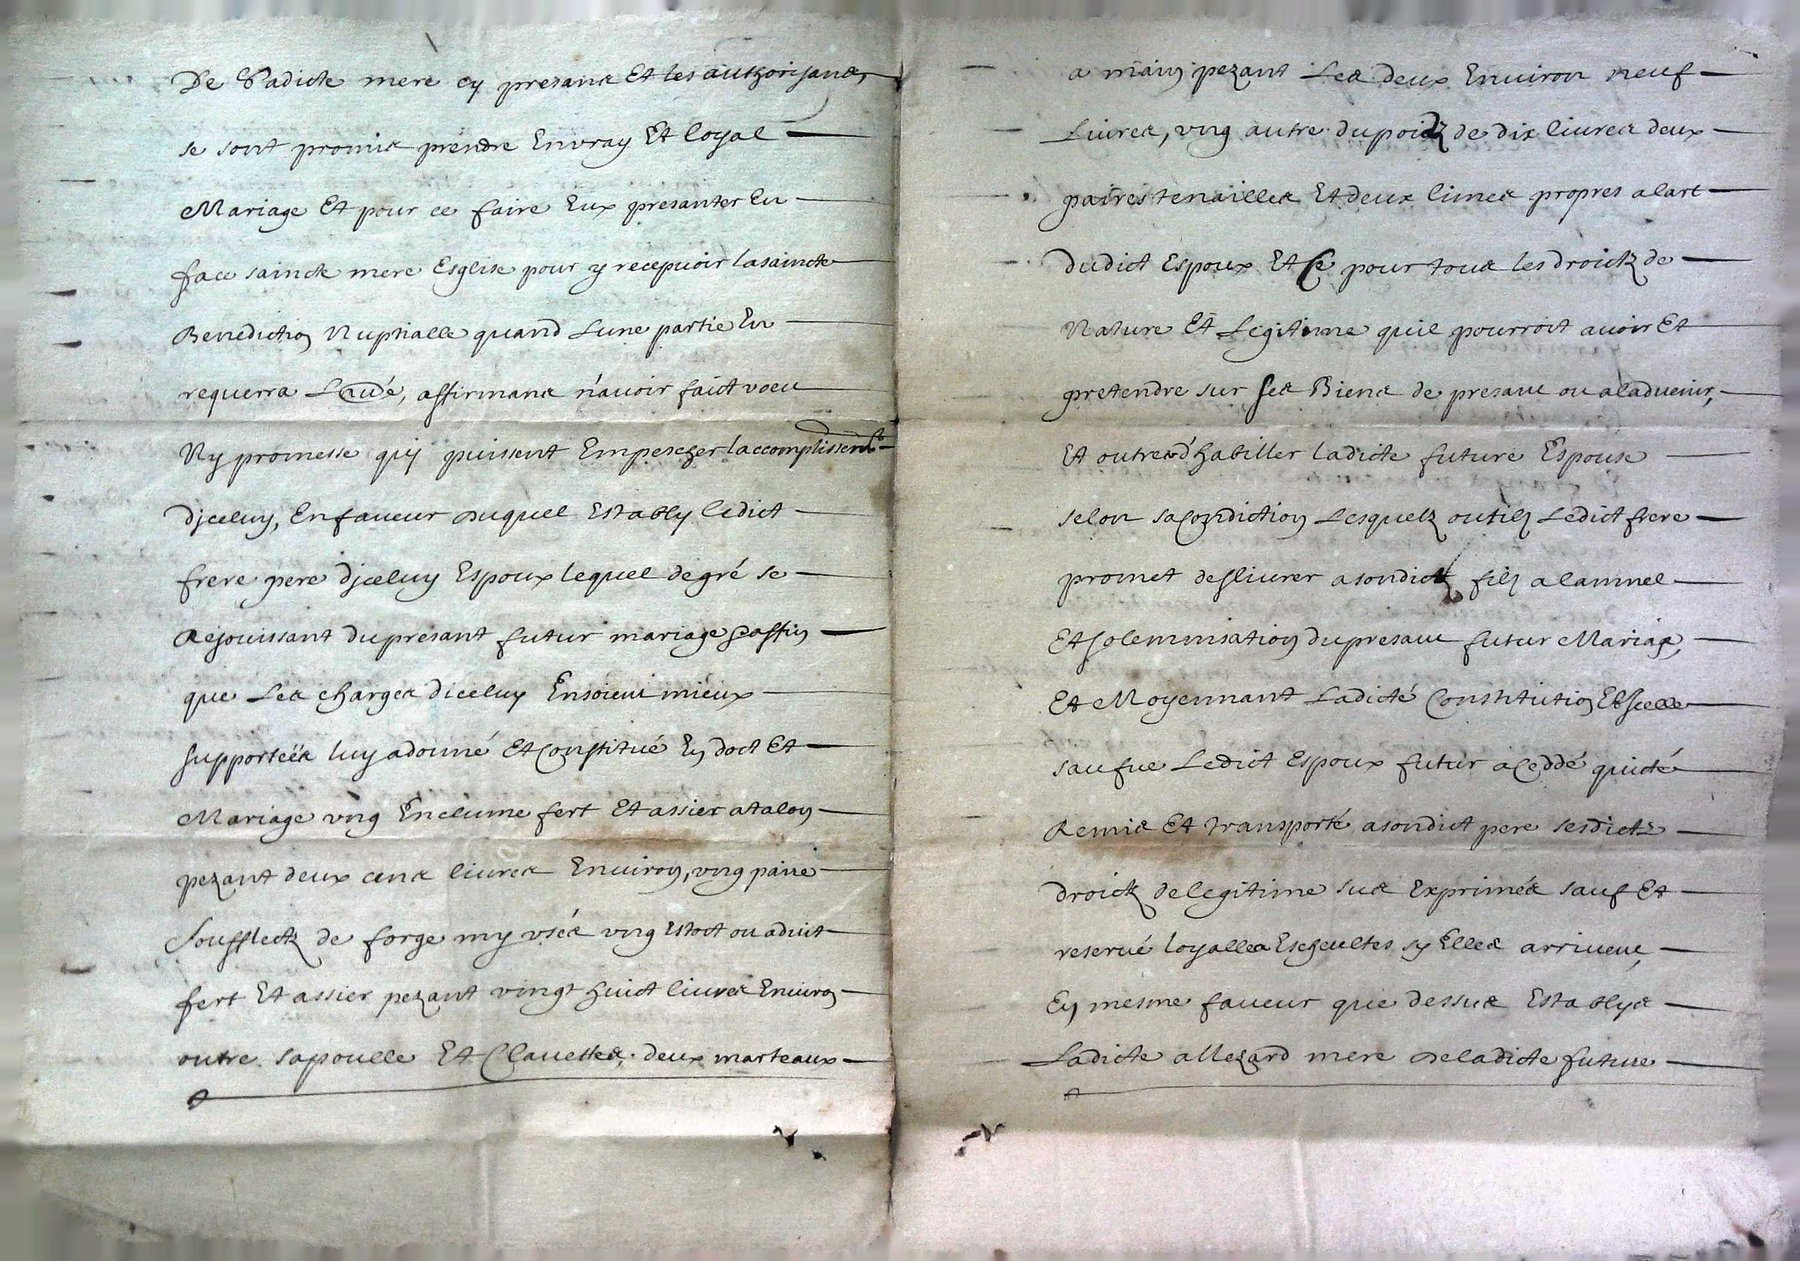 De Ladicte mere cy presans Et les authorisans,
se sont promis prendre En vray Et loyal
Mariage Et pour ce faire Eux presanter En
face saincte mere Esglise pour y recepvoir la saincte
Benediction Nuptialle quand Lune partie En
requerra L'autre, affirmans n'avoir faict voeu
Ny promesse quy puissent Empescher laccomplissemt
d'jceluy, En faveur duquel Estably ledict
frere pere d'jceluy Espoux lequel de gré se
Rejouissant du presant futur mariage Et affin
que Les charges d'iceluy En soient mieux
supportées luy a donné Et Constitué En doct Et
Mariage vng Enclume fert Et assier a talon
pezant deux cens livres Environ, vng paire
Soufflectz de forge my vsés vng Estoct ou
fert Et assier pezant vingt huict livres Environ
outre sa poulle Et Clavettes, deux marteaux
a main pezant Les deux Environ neuf
Livres, vng autre du poidz de dix livres deux
paires tenailles Et deux limes propres a lart
dudict Espoux Et Ce pour tous les droictz de
Nature Et Legitime quil pourroit avoir Et
pretendre sur ses Biens de presant ou a ladvenir,
Et outre d'habiller ladicte future Espouse
selon sa Condiction Lesquelz outilz Ledict frere
promet deslivrer a sondict filz a
Et solemnisation du presant futur Mariage,
Et Moyennant Ladicte Constitution Et Icelle
saufve Ledict Espoux futur a Ceddé quicté
Remis Et transporté a sondict pere sesdictz
droictz de legitime sus Exprimés sauf Et
reservé loyalles Escheultes sy Elles arrivent,
En mesme faveur que dessus Establye
Ladicte allezard mere de ladicte future